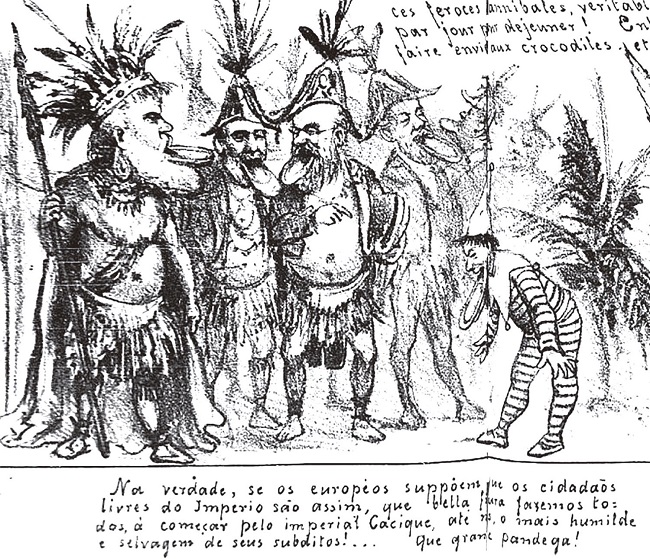 ces feroces cannibales, veritabl
par jour pour dejeuner! En
faire envie aux crocodiles, et
Na verdade, se os européos suppõem que os cidadaõs
livres do Imperio são assim, que bella figura fazemos to-
dos, à começar pelo imperial Cacique, ate nós, o mais humilde
e selvagem de seus subditos!... que grande pandega!